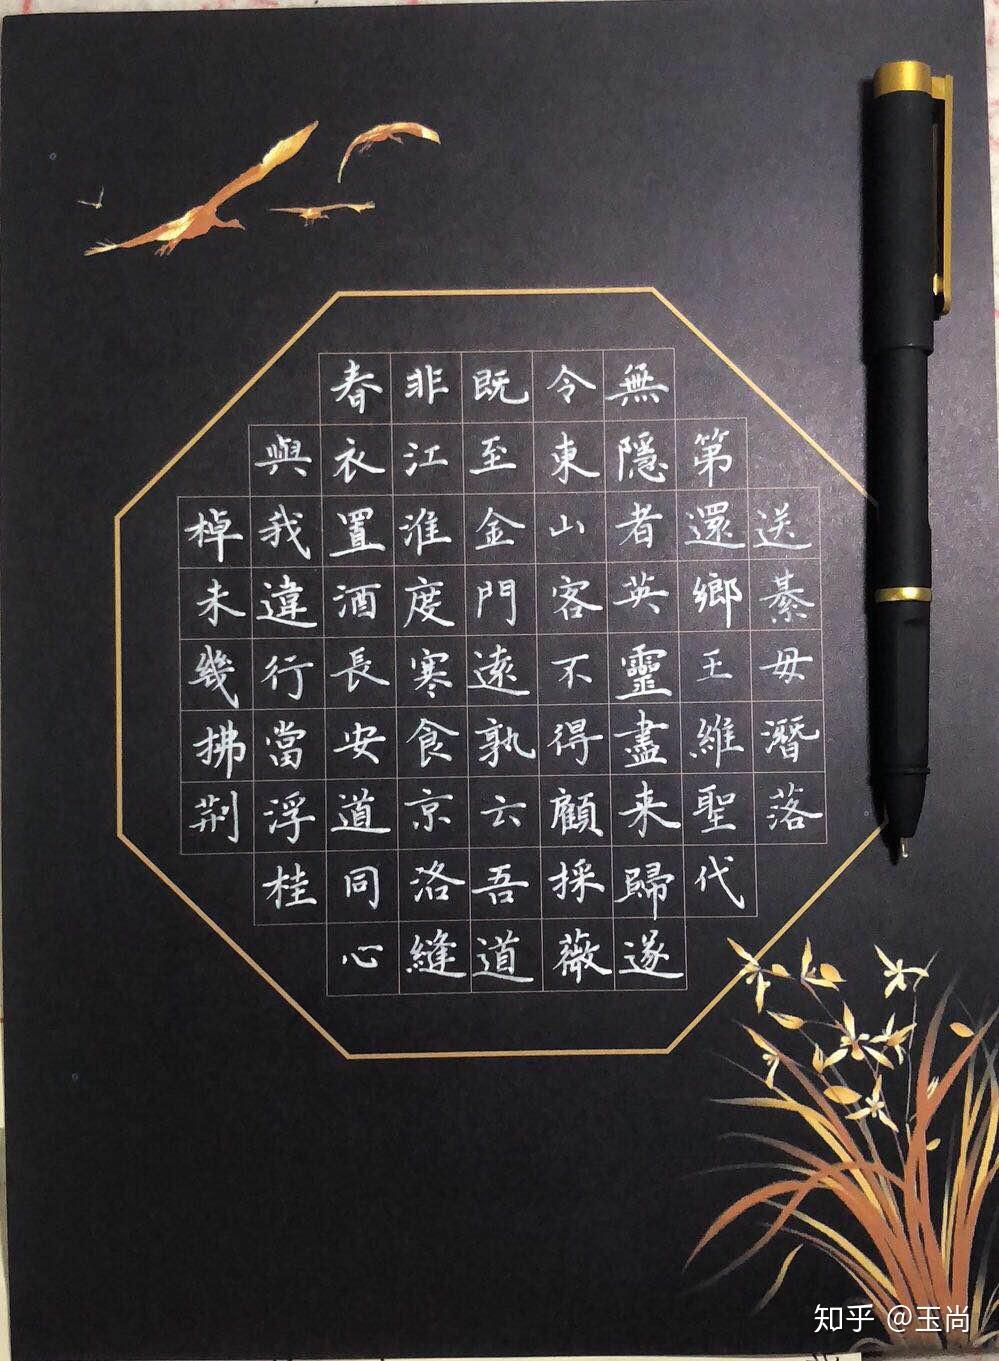 送綦毋潛落
第還鄉王維聖代
無隱者英靈盡来歸遂
令東山客不得顧採薇
既至金門遠孰六吾道
非江淮度寒食京洛縫
春衣置酒長安道同心
與我違行當浮桂
棹未幾拂荆
知乎 @玉尚